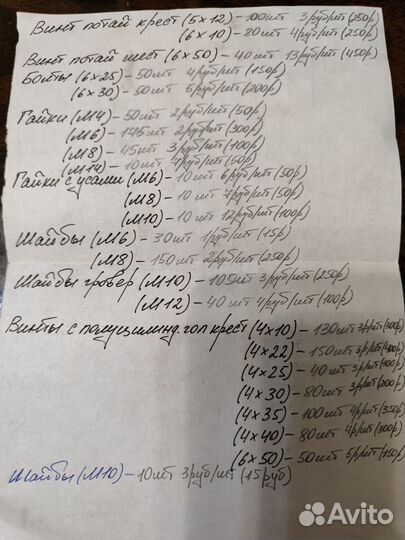 Винт потай крест (5×12) – 100шт 3руб/шт (250р)
(6×10) – 80шт 4руб/шт (250р)
Винт потай шест (6×50) – 40шт 13руб/шт (450р)
Болты (6×25) – 50шт 4руб/шт (150р)
(6×30) – 50шт 5руб/шт (200р)
Гайки (М4) – 50шт 2руб/шт (50р)
(М6) – 175шт 2руб/шт (300р)
(М8) – 45шт 3руб/шт (100р)
(М14) – 10шт 7руб/шт (50р)
Гайки с усами (М6) – 10шт 6руб/шт (50р)
(М8) – 10шт 7руб/шт (50р)
(М10) – 10шт 12руб/шт (100р)
Шайбы (М6) – 30шт 1руб/шт (15р)
(М8) – 150шт 2руб/шт (250р)
Шайбы гровер (М10) – 105шт 3руб/шт (250р)
(М12) – 40шт 4руб/шт (100р)
Винты с полуцилинд. гол крест (4×10) – 130шт 3р/шт
(4×22) – 150шт 3р/шт
(4×25) – 40шт 3р/шт (100р)
(4×30) – 80шт 3р/шт (200р)
(4×35) – 100шт 4р/шт (350р)
(4×40) – 80шт 4р/шт (300р)
(6×50) – 50шт 5р/шт
Шайбы (М10) – 10шт 3руб/шт (15руб)
Avito